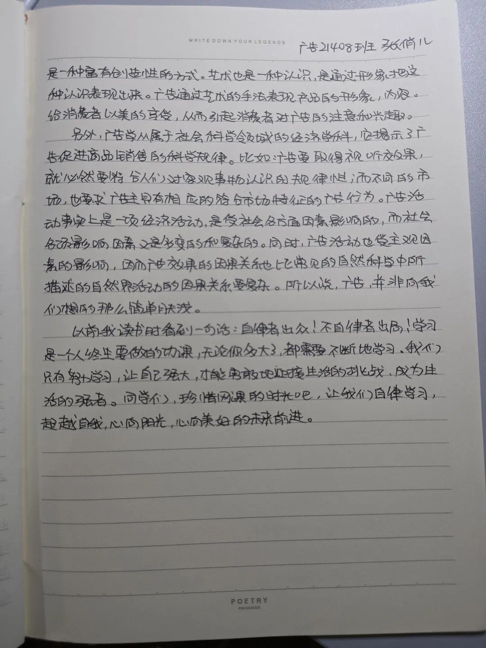 WRITE DOWN YOUR LEGENDS
广告21408班 张倩儿
是一种富有创造性的方式。艺术也是一种认识,是通过形象把这
种认识表现出来。广告通过艺术的手法表现产品的形象,内容。
给消费者以美的享受,从而引起消费者对广告的注意和兴趣。
另外,广告学从属于社会科学领域的经济学科,它揭示了广
告促进商品销售的科学规律。比如:广告要取得视听效果,
就必然要符合人们对客观事物认识的规律性;而不同的市
场,也要求广告主具有相应的符合市场特征的广告行为。广告活
动事实上是一项经济活动,是受社会各方面因素影响的,而社会
各方影响因素又是多变的和复杂的。同时,广告活动也受主观因
素的影响,因而广告效果的因果关系也比常见的自然科学中所
描述的自然界活动的因果关系要复杂。所以说,广告,并非向我
们想的那么简单肤浅。
以前我读书时看到一句话:自律者出众!不自律者出局!学习
是一个人终生要做的功课,无论你多大了,都需要不断地学习。我们
只有努力学习,让自己强大,才能勇敢地迎接生活的挑战,成为生
活的强者。同学们,珍惜网课的时光吧,让我们自律学习,
超越自我,心向阳光,心向美好的未来前进。
POETRY